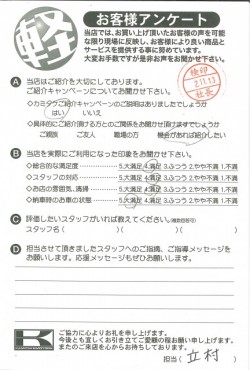 軽
お客様アンケート
当店では、お買い上げ頂いたお客様の声を可能
な限り現場に反映し、お客様により良い商品と
サービスを提供する事に努めています。
大変お手数ですが是非お声をお聞かせ下さい。
検印
社長
A 当店はご紹介を大切にしております。
ご紹介キャンペーンについてお聞かせ下さい。
◇カミタケご紹介キャンペーンのご説明はありましたでしょうか
はい いいえ
◇具体的にご紹介頂ける方とのご関係をお聞かせ頂けますでしょうか
ご親族 ご友人 職場の方 機会があれば紹介したい
B 当店を実際にご利用になった印象をお聞かせ下さい。
◇総合的な満足度 5.大満足 4.満足 3.ふつう 2.やや不満 1.不満
◇スタッフの対応 5.大満足 4.満足 3.ふつう 2.やや不満 1.不満
◇お店の雰囲気、清掃 5.大満足 4.満足 3.ふつう 2.やや不満 1.不満
◇納車時のお車の状態 5.大満足 4.満足 3.ふつう 2.やや不満 1.不満
C 評価したいスタッフがいれば教えてください。(複数回答可)
スタッフ名( )( )( )
D 担当させて頂きましたスタッフへのご指摘、ご指導メッセージを
お願いします。応援メッセージもぜひお願いします。
K
ご協力に心よりお礼を申し上げます。
今後とも宜しくお引き立てご愛顧の程お願い申し上げます。
またのご来店を心からお待ちしております。
担当(立村)